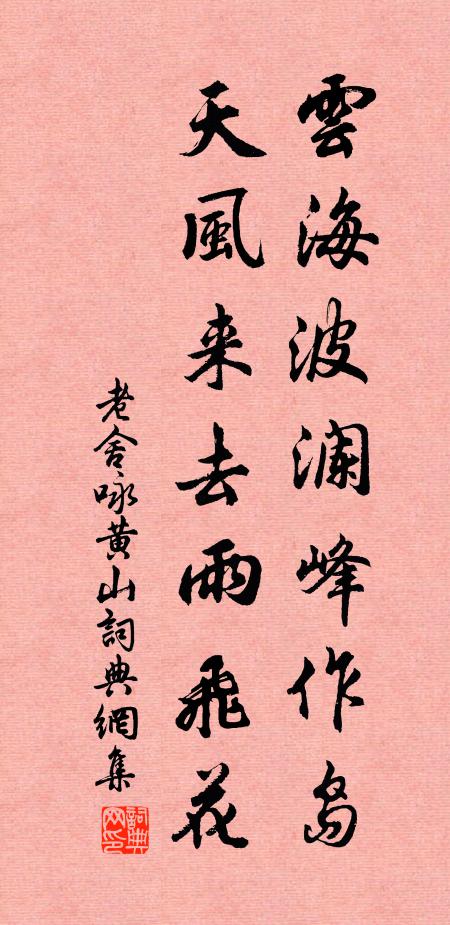 雲海波瀾峰作島
天風来去雨飛花
老舍咏黄山詞典網集
詞典網印